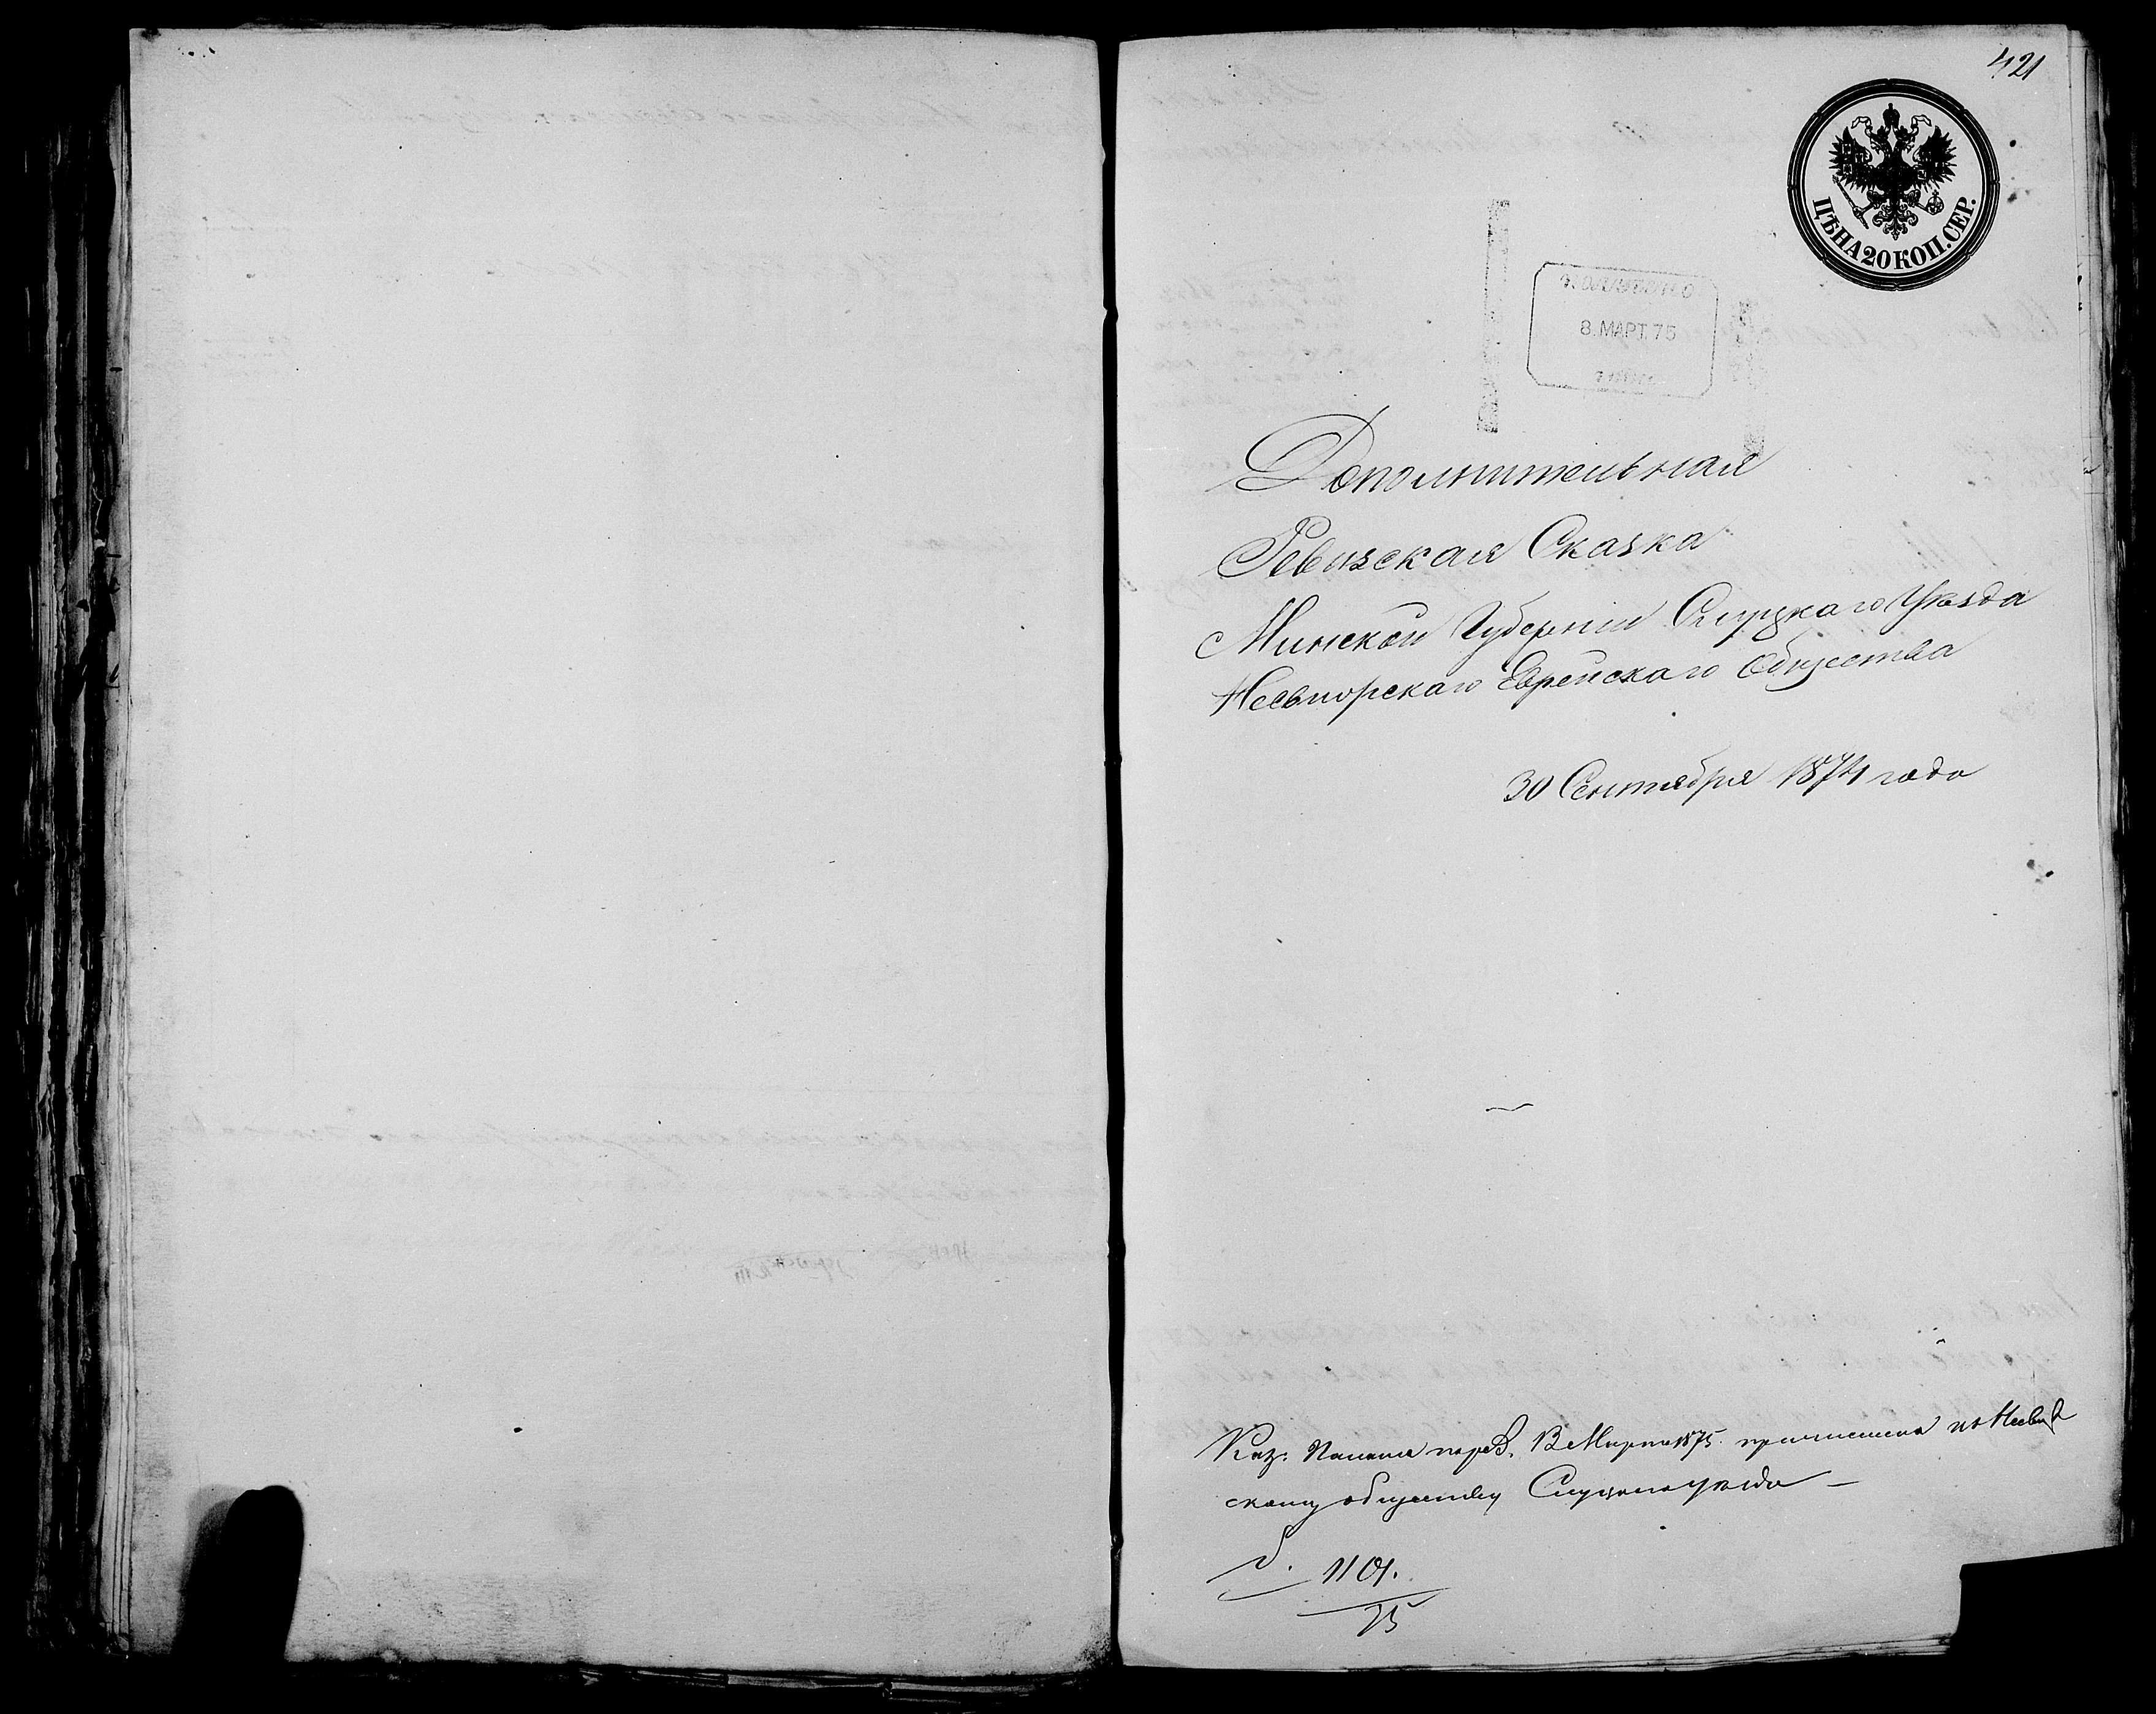 421
ЦѢНА 20 КОП. СЕР.
8. МАРТ. 75
Дополнительная
Ревизская Сказка
Минской Губерніи Слуцкаго Уѣзда
Несвижскаго Еврейскаго Общества
30 Сентября 1874 года
Каз: Палата 1875. причислила къ Несвиж
скому обществу Слуцкаго уѣзда —
1101.
75